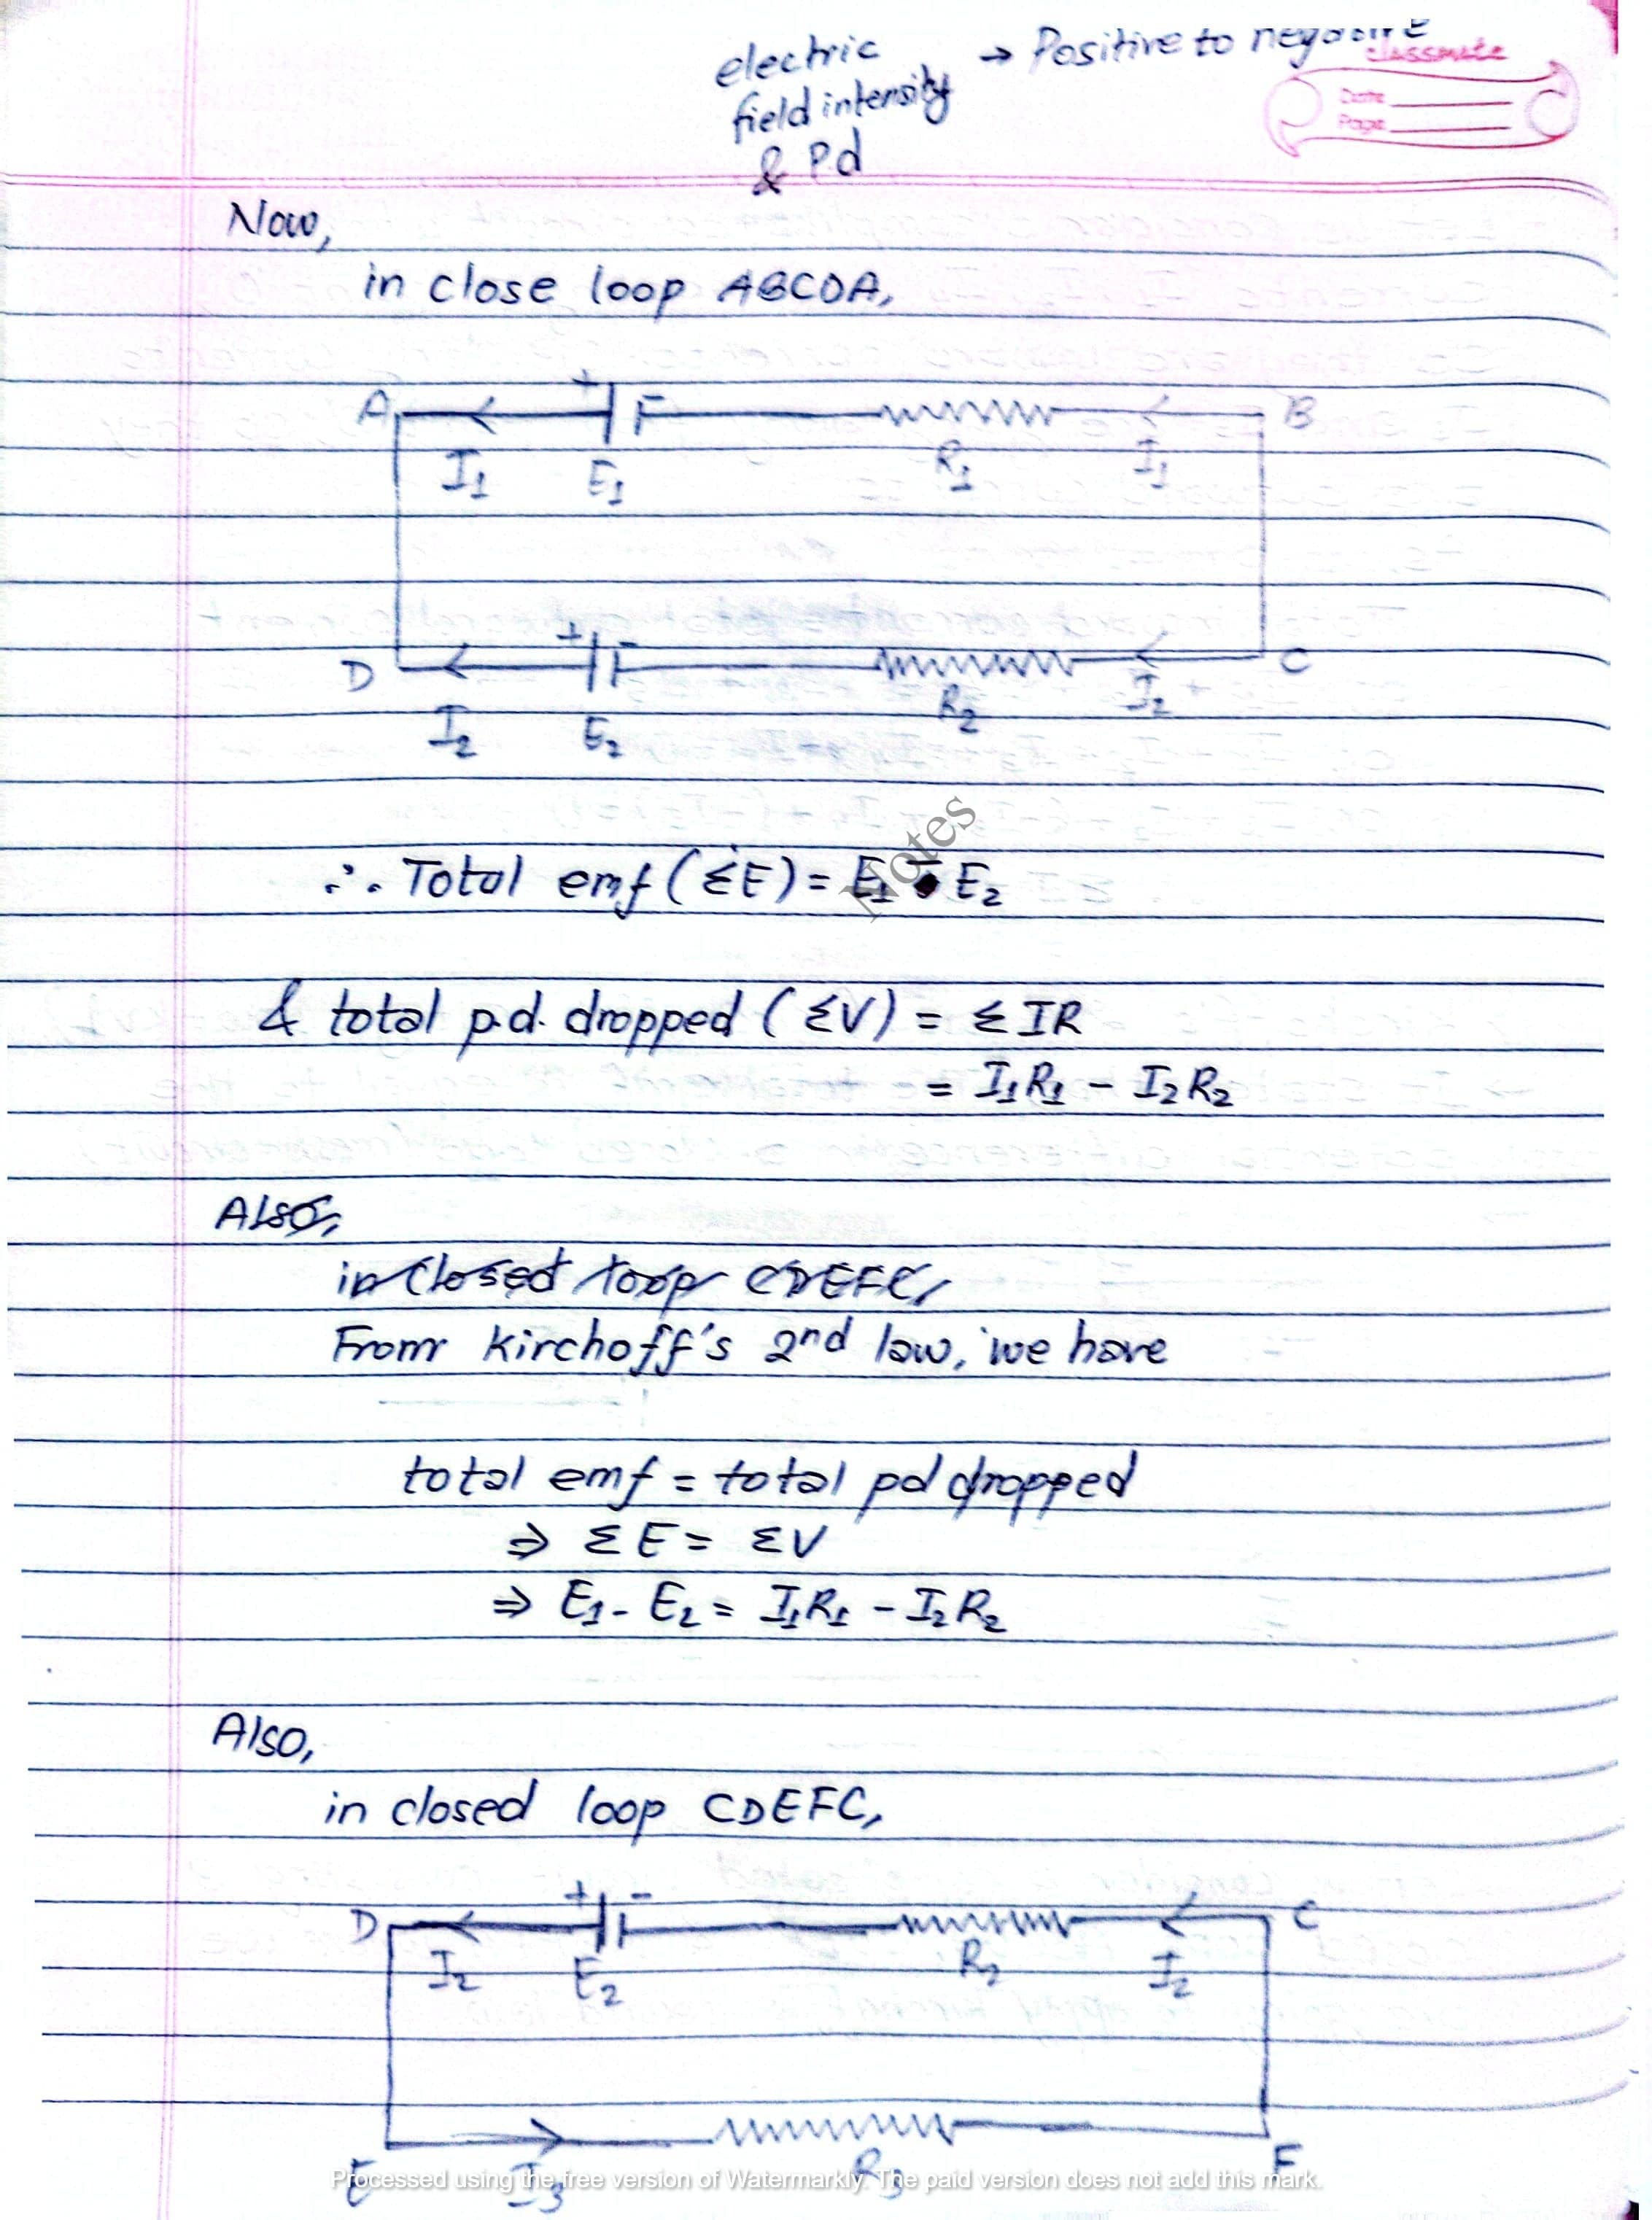 electric → Positive to negative
field intensity
& P.d
classmate
Date
Page
Now,
in close loop ABCDA,
A + - B
I₁ E₁ R₁ I₁
D + - C
I₂ E₂ R₂ I₂
Notes
∴ Total emf (ΣE) = E₁ - E₂
& total p.d. dropped (ΣV) = Σ IR
= I₁R₁ - I₂R₂
Also,
in Closed loop CDEFC,
From Kirchoff's 2nd law, we have
total emf = total pd dropped
⇒ Σ E = ΣV
⇒ E₁ - E₂ = I₁R₁ - I₂R₂
Also,
in closed loop CDEFC,
D + - C
I₂ E₂ R₂ I₂
E I₃ R₃ F
Processed using the free version of Watermarkly. The paid version does not add this mark.